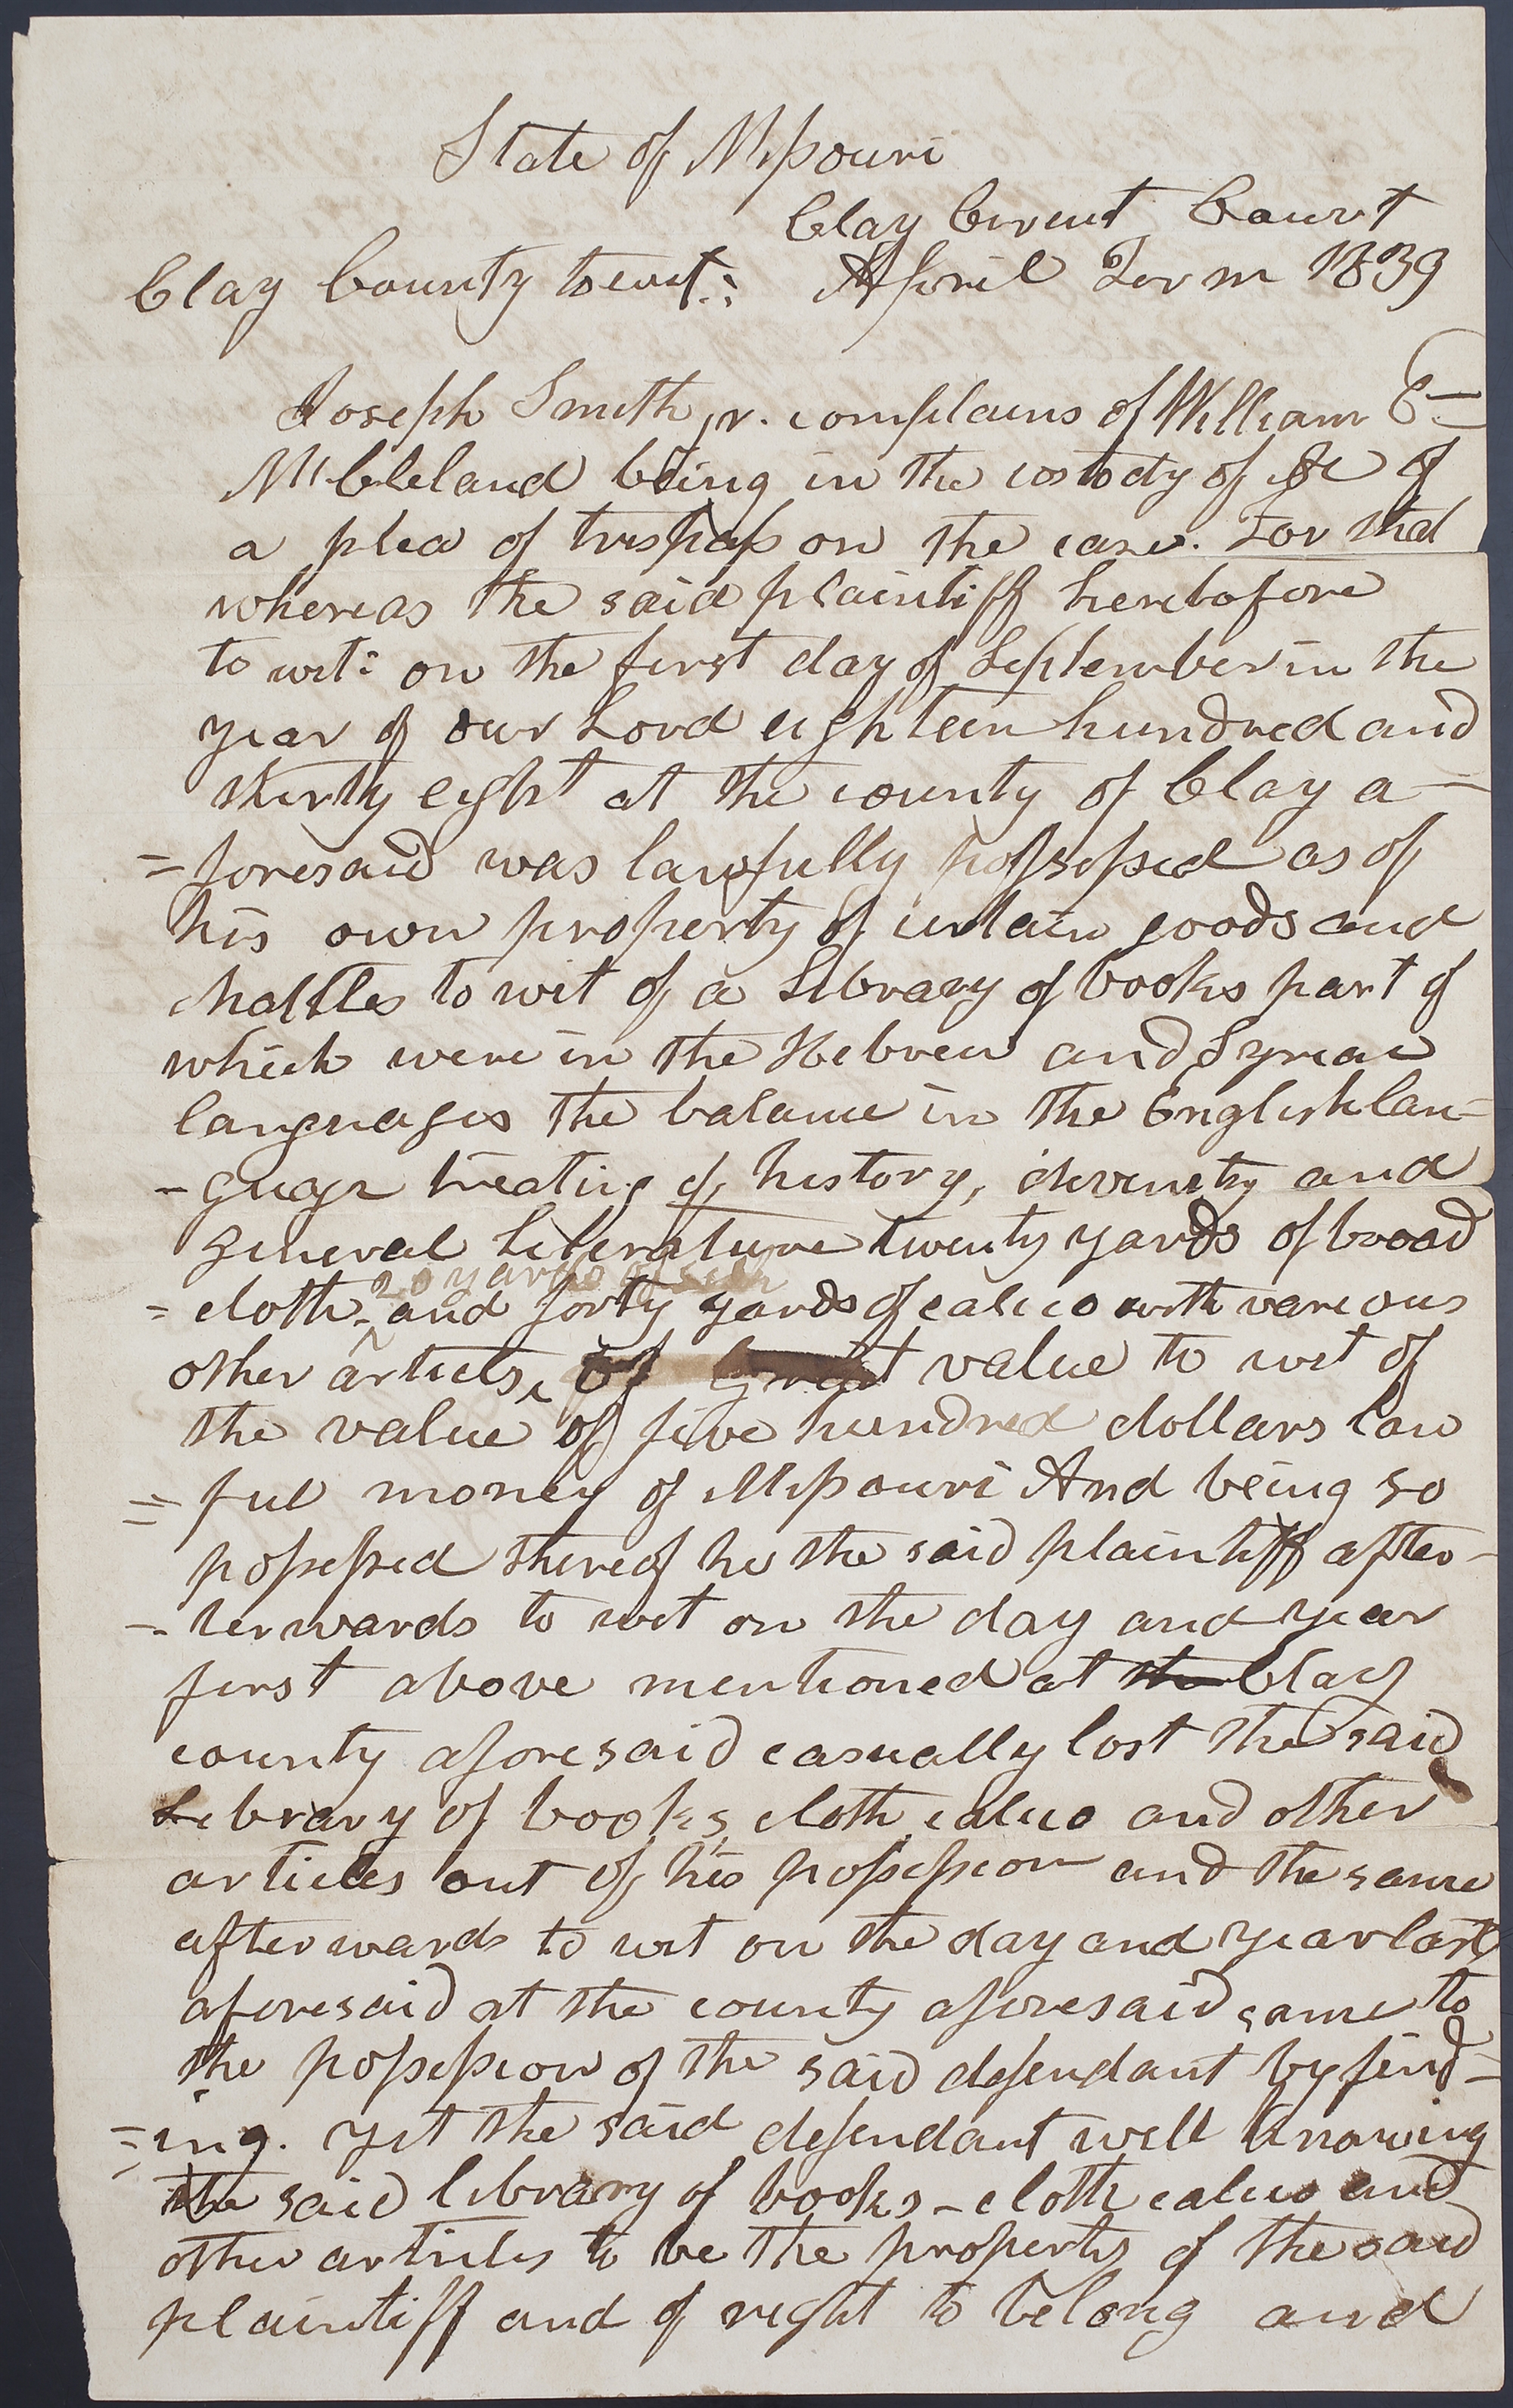 State of Missouri
Clay Circuit Court
Clay County towit: April Term 1839
Joseph Smith jr. complains of William E-
McCleland being in the custody of &c of
a plea of trespass on the case. For that
whereas the said plaintiff heretofore
to wit: on the first day of September in the
year of our Lord eighteen hundred and
thirty eight at the county of Clay a-
=foresaid was lawfully possessed as of
his own property of certain goods and
chattles to wit of a Library of books part of
which were in the Hebrew and Syriac
languages the balance in the English lan=
-guage treating of history, divinity and
general Literature twenty yards of broad
20 yards of silk
=cloth, and forty yards of calico with various
other articles, of great value to wit of
the value of five hundred dollars law
=ful money of Missouri And being so
possessed thereof he the said plaintiff after-
-terwards to wit on the day and year
first above mentioned at the Clay
county aforesaid casually lost the said
Library of books, cloth calico and other
articles out of his possession and the same
afterwards to wit on the day and year last
aforesaid at the county aforesaid came to
the possession of the said defendant by find=
=ing. yet the said defendant well knowing
the said library of books - cloth calico and
other articles to be the property of the said
plaintiff and of right to belong and